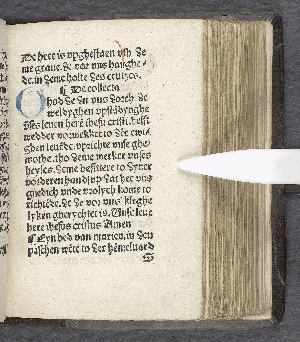 De here is vpghestaen vth de
me graue. de vor vns hanghe-
de. in deme holte des cruces.
¶ De collecta
God de du vns dorch de
weldyghen vpstandynghe
dines leuen heren ihesu cristi. hefft
wedder vorwecket to dem ewi-
ghen leuende. vprichte vnse ghe
mothe. tho deme werker vnses
heyles. deme besittere to dyner
vorderen hand. vp dat he vns
gnedich vnde vrolych kome to
richtede. de de vor vns kleghe
lyken gherychtet is. Vnse leue
here ihesus cristus Amen
¶ Eyn bed van marien. in den
paschen wente to der hemeluard